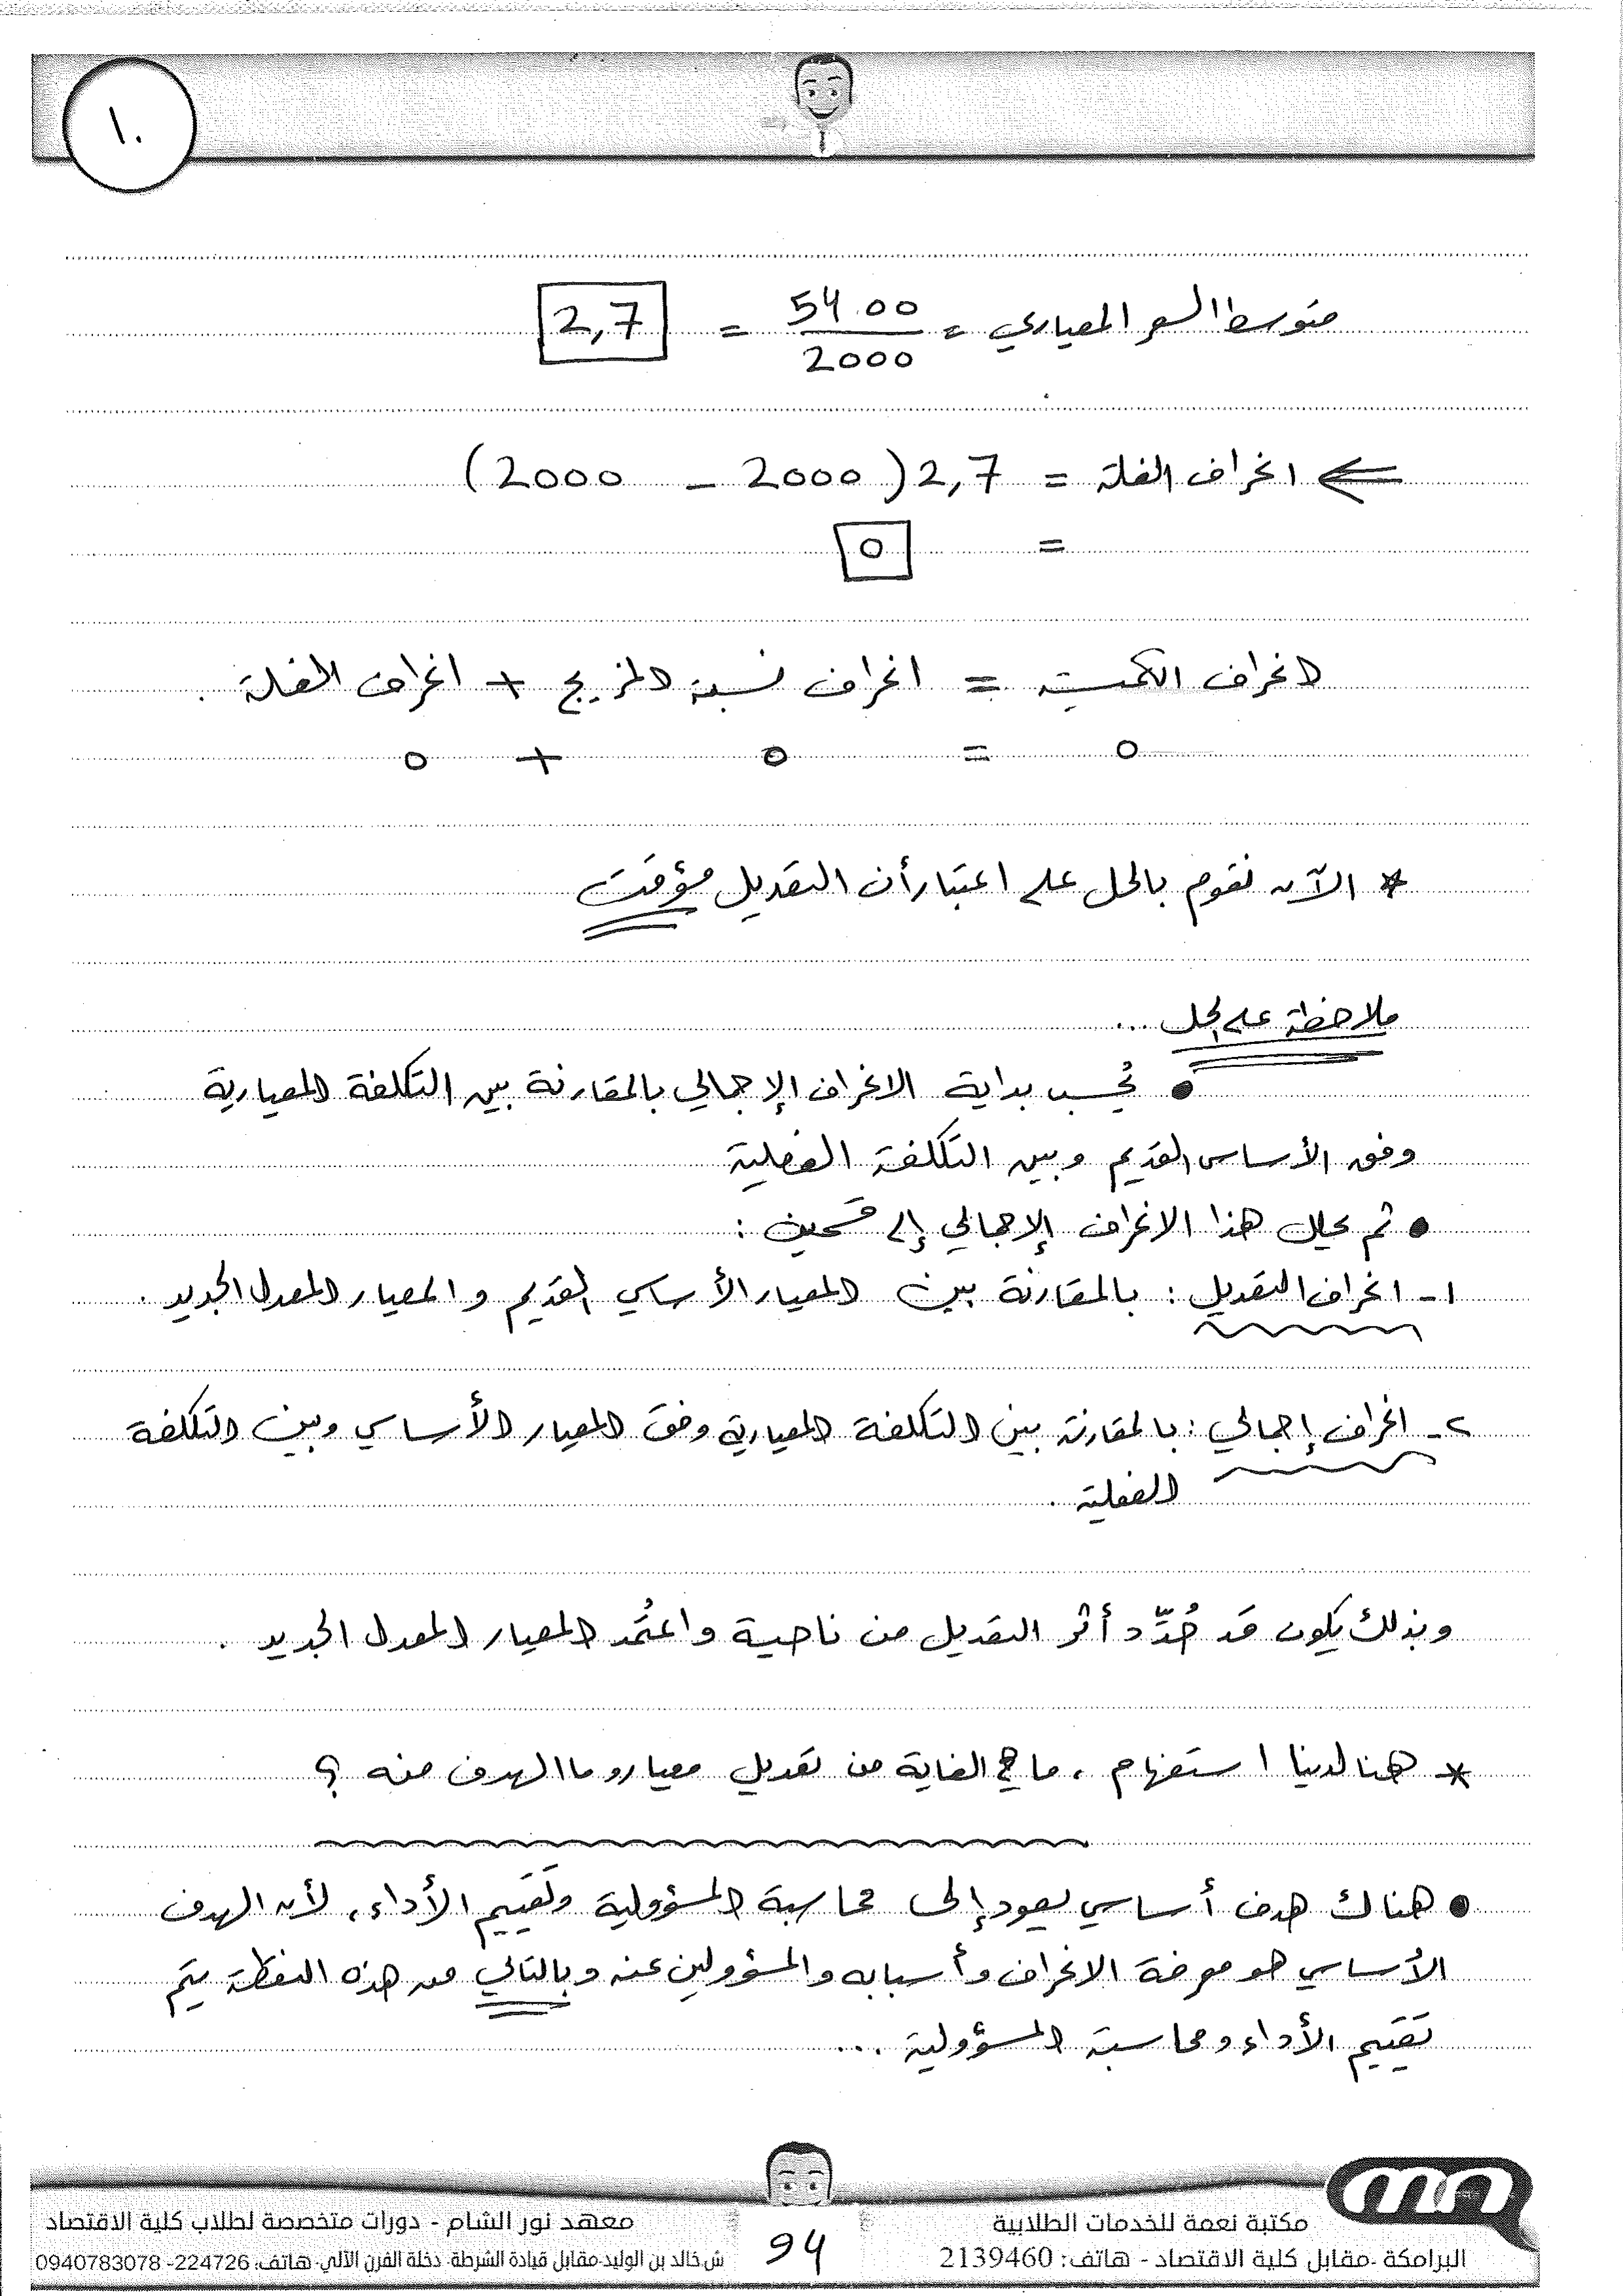 ١٠
متوسط السعر المعياري = 5400 / 2000 = 2,7
انحراف الغلة = 2,7 (2000 - 2000)
= 0
انحراف الكمية = انحراف نسبة المزيج + انحراف الغلة .
0 = 0 + 0
* الآن نقوم بالحل على اعتبار أن التعديل مؤقت
ملاحظة على الحل ...
• تُحسب بداية الانحراف الإجمالي بالمقارنة بين التكلفة المعيارية
وفق الأساس القديم وبين التكلفة الفعلية
• ثم يحلل هذا الانحراف الإجمالي إلى قسمين :
١- انحراف التعديل : بالمقارنة بين المعيار الأساسي القديم والمعيار المعدل الجديد .
٢- انحراف إجمالي : بالمقارنة بين التكلفة المعيارية وفق المعيار الأساسي وبين التكلفة
الفعلية .
وبذلك يكون قد حُدِّد أثر التعديل من ناحية واعتُمد المعيار المعدل الجديد .
* هنا لدينا استفهام ، ما هي الغاية من تعديل معيار وما الهدف منه ؟
• هناك هدف أساسي يعود إلى محاسبة المسؤولية وتقييم الأداء ، لأن الهدف
الأساسي هو معرفة الانحراف وأسبابه والمسؤولين عنه وبالتالي من هذه النقطة يتم
تقييم الأداء ومحاسبة المسؤولية ...
مكتبة نعمة للخدمات الطلابية
البرامكة -مقابل كلية الاقتصاد - هاتف: 2139460
94
معهد نور الشام - دورات متخصصة لطلاب كلية الاقتصاد
ش.خالد بن الوليد-مقابل قيادة الشرطة- دخلة الفرن الآلي-هاتف: 224726- 0940783078